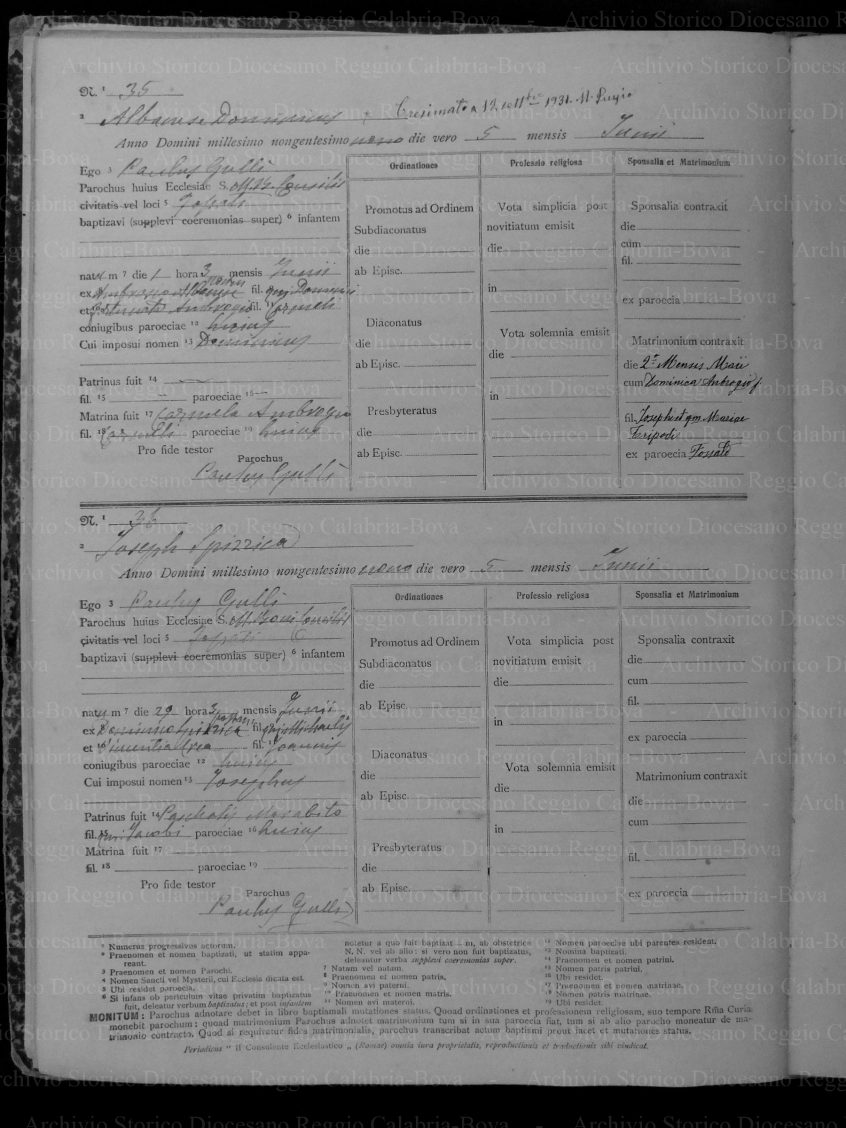 Archivio Storico Diocesano Reggio Calabria-Bova - Archivio Storico Diocesano
N. 1 35
2 Albanese Dominicus Cresimato a 1931
Anno Domini millesimo nongentesimo nono die vero 5 mensis Junii
Ego 3 Paulus Gulli
Parochus huius Ecclesiae S.
civitatis vel loci 5
baptizavi (supplevi coeremonias super) 6 infantem
nat m 7 die 1 hora 3 mensis Junii
ex fil.
et Ambrogio fil. 11
coniugibus paroeciae 12 huius
Cui imposui nomen 13 Dominicus
Patrinus fuit 14
fil. 15 paroeciae 15
Matrina fuit 17 Carmela Ambrogio
fil. 18 Carmeli paroeciae 19 huius
Pro fide testor
Parochus
Paulus Gulli
Ordinationes
Promotus ad Ordinem
Subdiaconatus
die
ab Episc.
Diaconatus
die
ab Episc.
Presbyteratus
die
ab Episc.
Professio religiosa
Vota simplicia post
novitiatum emisit
die
in
Vota solemnia emisit
die
in
Sponsalia et Matrimonium
Sponsalia contraxit
die
cum
fil.
ex paroecia
Matrimonium contraxit
die 2 Mensis Maii
cum Dominica Ambrogio f.
fil. Joseph et qm Mariae
Tripodi
ex paroecia Fossato
N. 1 36
2 Joseph Spizzica
Anno Domini millesimo nongentesimo nono die vero 5 mensis Junii
Ego 3 Paulus Gulli
Parochus huius Ecclesiae S. M. Boni Consilii
civitatis vel loci 5
baptizavi (supplevi coeremonias super) 6 infantem
nat m 7 die 29 hora 3 mensis Junii
ex Dominico Spizzica fil. Michaelis
et fil. Joannis
coniugibus paroeciae 12 huius
Cui imposui nomen 13 Josephus
Patrinus fuit 14 Paschalis Morabito
fil. 15 Jacobi paroeciae 16 huius
Matrina fuit 17
fil. 18 paroeciae 19
Pro fide testor
Parochus
Paulus Gulli
Ordinationes
Promotus ad Ordinem
Subdiaconatus
die
ab Episc.
Diaconatus
die
ab Episc.
Presbyteratus
die
ab Episc.
Professio religiosa
Vota simplicia post
novitiatum emisit
die
in
Vota solemnia emisit
die
in
Sponsalia et Matrimonium
Sponsalia contraxit
die
cum
fil.
ex paroecia
Matrimonium contraxit
die
cum
fil.
ex paroecia
1 Numerus progressivus actorum.
2 Praenomen et nomen baptizati, ut statim appa-
reant.
3 Praenomen et nomen Parochi.
4 Nomen Sancti vel Mysterii, cui Ecclesia dicata est.
5 Ubi residet paroecia.
6 Si infans ob periculum vitae privatim baptizatus
fuit, deleatur verbum baptizatus; et post infantem
notetur a quo fuit baptizat... m, ab obstetrice
N. N. vel ab alio: si vero non fuit baptizatus,
deleantur verba supplevi coeremonias super.
7 Natam vel natum.
8 Praenomen et nomen patris.
9 Nomen avi paterni.
10 Praenomen et nomen matris.
11 Nomen avi materni.
12 Nomen paroeciae ubi parentes resident.
13 Nomina baptizati.
14 Praenomen et nomen patrini.
15 Nomen patris patrini.
16 Ubi residet.
17 Praenomen et nomen matrinae.
18 Nomen patris matrinae.
19 Ubi residet.
MONITUM: Parochus adnotare debet in libro baptismali mutationes status. Quoad ordinationes et professionem religiosam, suo tempore Rma Curia
monebit parochum: quoad matrimonium Parochus adnotet matrimonium tum si in sua paroecia fiat, tum si ab alio parocho moneatur de ma-
trimonio contracto. Quod si requiretur fides matrimonialis, parochus transcribat actum baptismi prout iacet et mutationes status.
Periodicus " Il Consulente Ecclesiastico „ (Romae) omnia iura proprietatis, reproductionis et traductionis sibi vindicat.